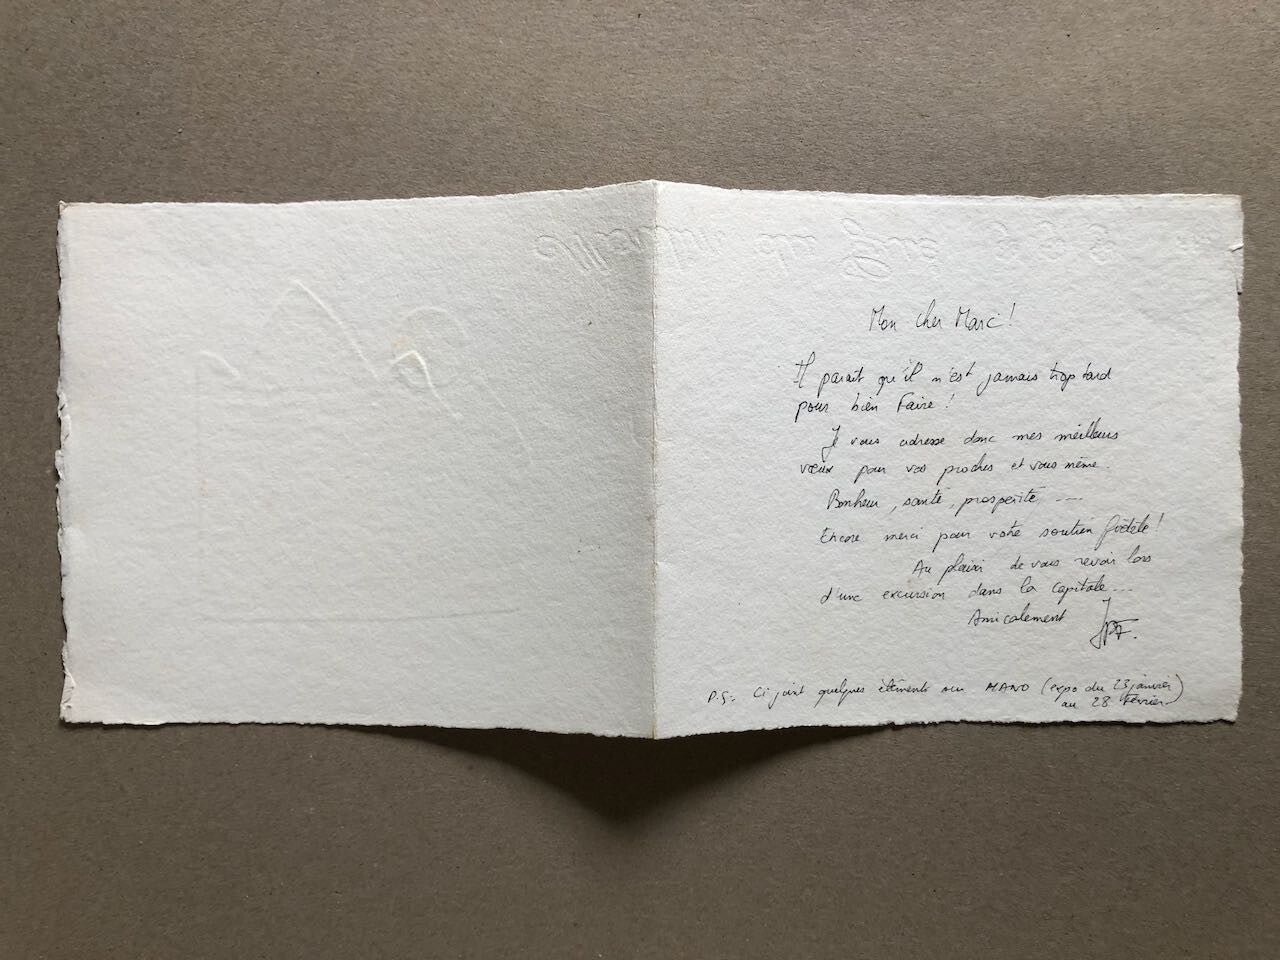 Mon cher Marc !
Il parait qu'il n'est jamais trop tard
pour bien Faire !
Je vous adresse donc mes meilleurs
vœux pour vos proches et vous même.
Bonheur, santé, prosperité ....
Encore merci pour votre soutien fidèle !
Au plaisir de vous revoir lors
d'une excursion dans la capitale...
Amicalement JPF.
P.S: Ci joint quelques éléments sur MANO (expo du 23 janvier
au 28 Février)